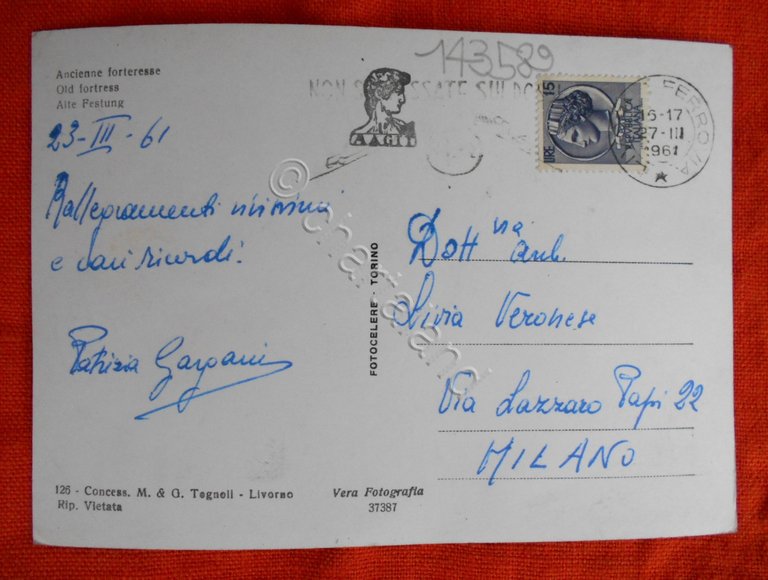 Ancienne forteresse
Old fortress
Alte Festung
23-III-61
Rallegramenti vivissimi
e cari ricordi.
Patrizia
126 - Concess. M. & G. Tognoli - Livorno
Rip. Vietata
Vera Fotografia
37387
FOTOCELERE - TORINO
© chartaland
143589
NON SUI
A.V.G.I.I.
LIRE 15
REPUBBLICA
ITALIANA
FERROVIA
16-17
27-III
1961
Dott ssa
Livia Veronese
Via Lazzaro Papi 22
MILANO